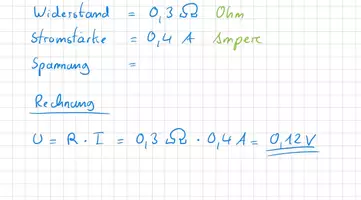 Widerstand = 0,3 Ω Ohm
Stromstärke = 0,4 A Ampere
Spannung =
Rechnung
U = R · I = 0,3 Ω · 0,4 A = 0,12 V